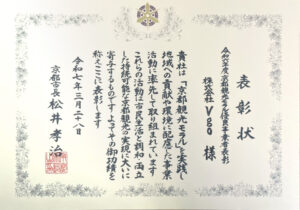 表彰状
令和六年度京都観光モラル優良事業者表彰
株式会社Veo 様
貴社は「京都観光モラル」を実践し
地域への貢献や環境に配慮した事業
活動に率先して取り組まれています
これらの活動は市民生活と調和・両立
した持続可能な京都観光の実現に大いに
寄与するものです よってその御功績を
称えここに表彰します
令和七年三月二十八日
京都市長 松井孝治